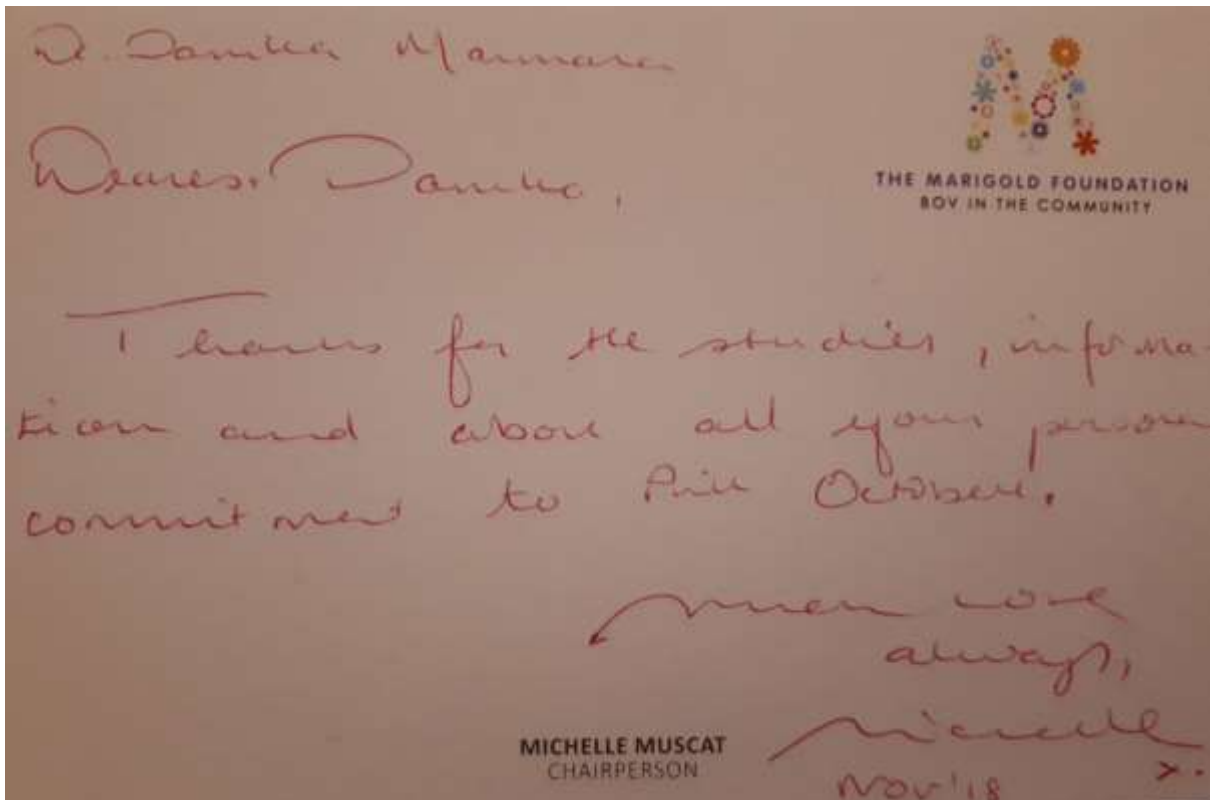 Dr. Danika Marmara
THE MARIGOLD FOUNDATION
BOV IN THE COMMUNITY
Dearest Danika,
Thanks for the studies, informa-
tion and above all your person
commitment to Pink October.
much love
always,
Michelle
x.
Nov '18
MICHELLE MUSCAT
CHAIRPERSON